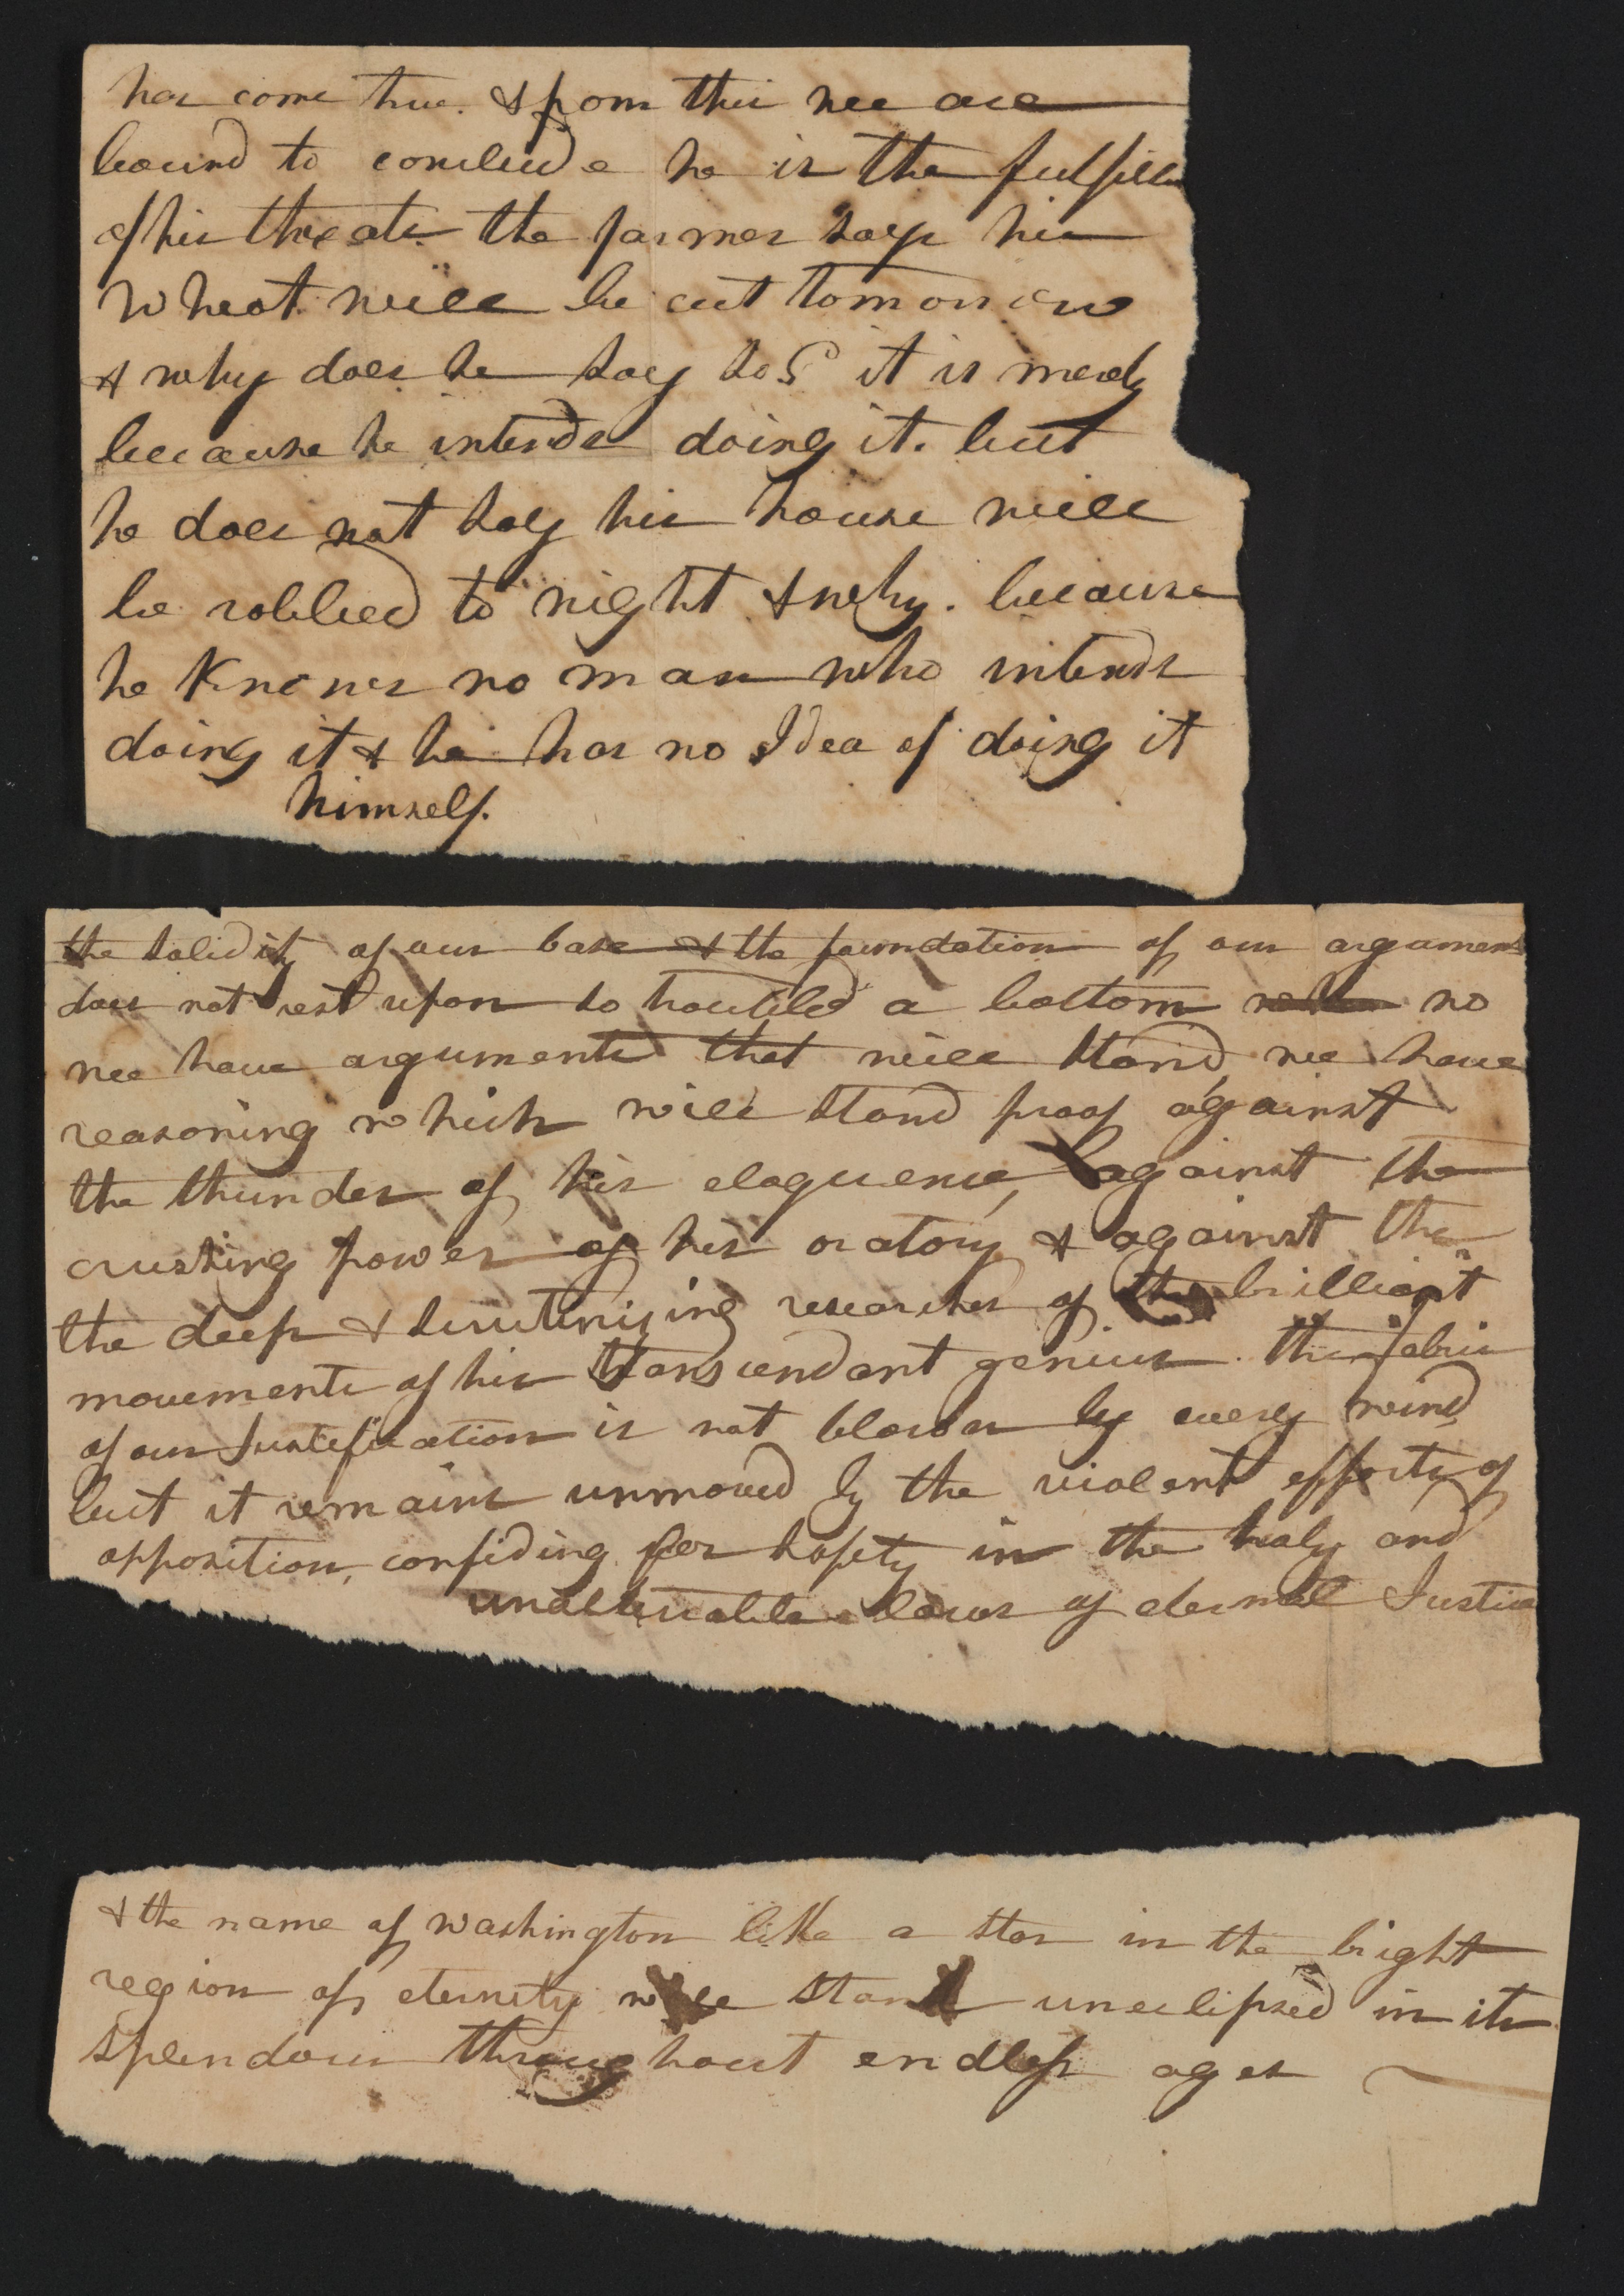 has come true. & from this we are
bound to conclude he is the fulfiller
of his threats. the farmer says his
wheat will be cut tomorrow
& why does he say so? it is merely
because he intends doing it. but
he does not say his house will
be robbed to night & why. because
he knows no man who intends
doing it & he has no Idea of doing it
himself.
the solidity of our base & the foundation of our arguments
does not rest upon so troubled a bottom no
we have arguments that will stand, we have
reasoning which will stand proof against
the thunder of his eloquence, against the
crushing power of his oratory & against the
the deep & scrutinizing researches of the brilliant
movements of his transcendant genius. the fabric
of our Justification is not blown by every wind
but it remains unmoved by the violent efforts of
opposition, confiding for safety in the holy and
unalterable laws of eternal Justice
& the name of Washington like a star in the bright
region of eternity will stand uneclipsed in its
splendour throughout endless ages